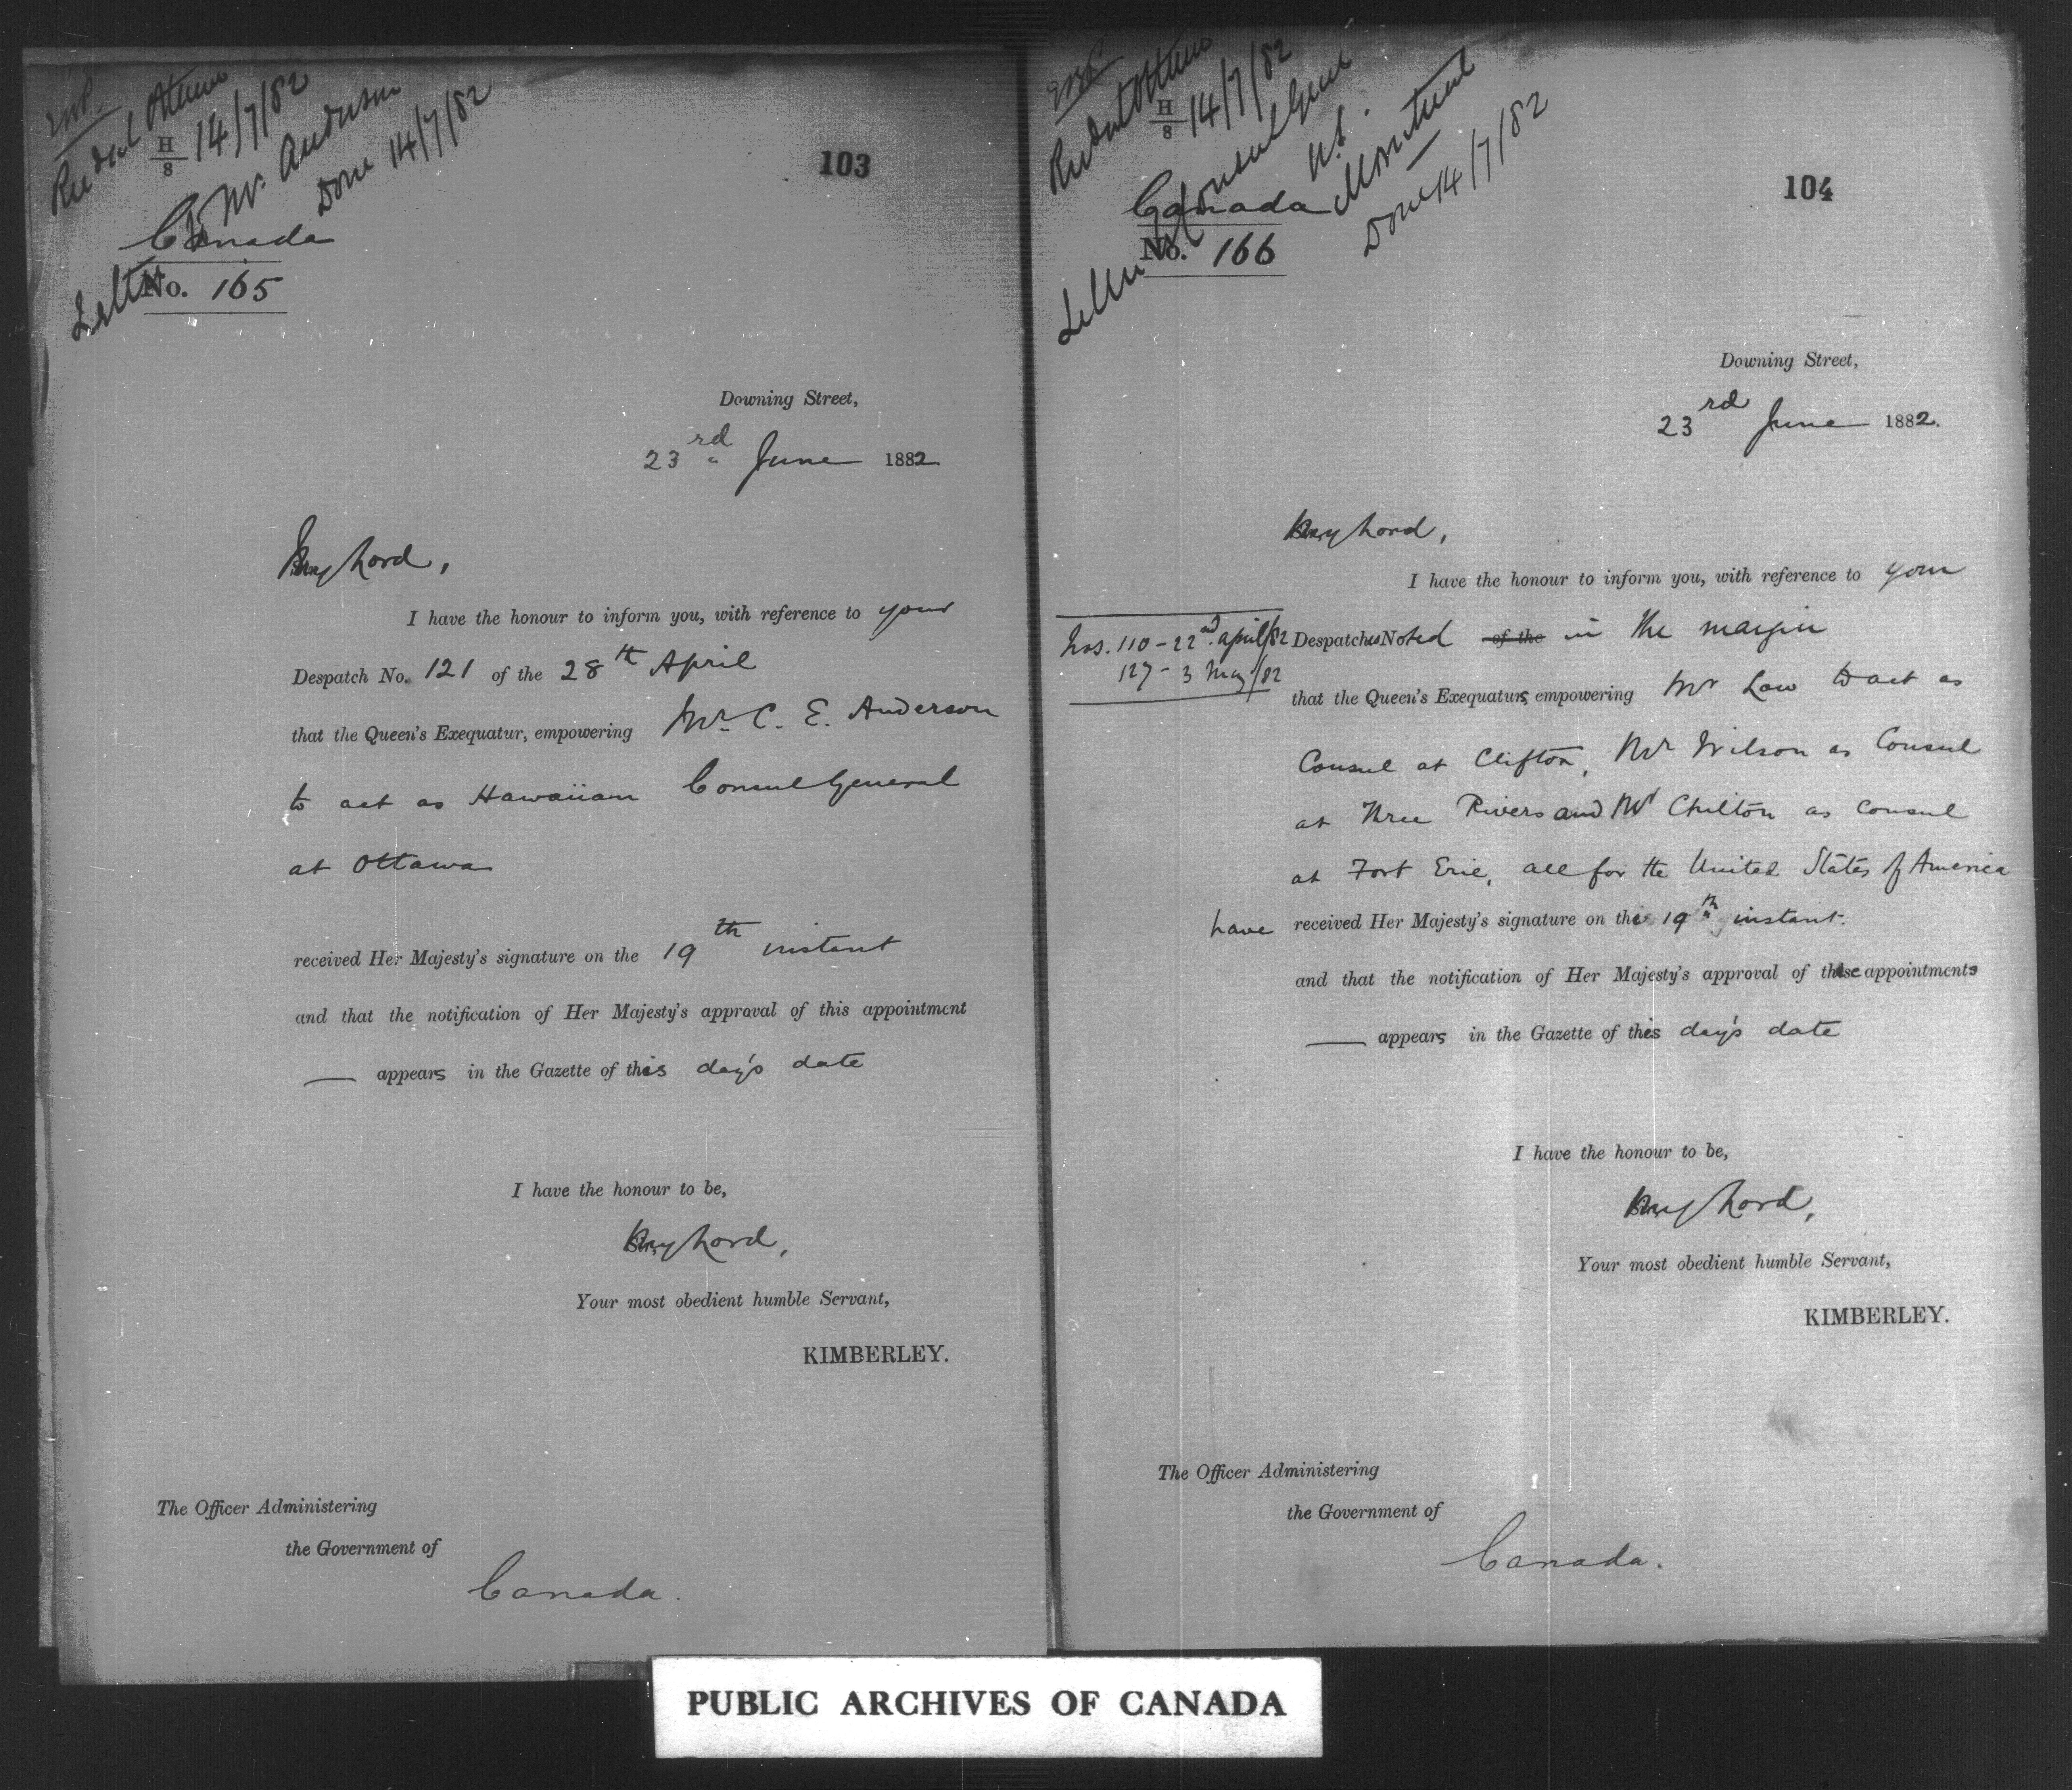 Recd at Ottawa
H/8 14/7/82
Letter to Mr. Anderson
Done 14/7/82
103
Canada
No. 165
Downing Street,
23rd June 1882.
My Lord,
I have the honour to inform you, with reference to your
Despatch No. 121 of the 28th April
that the Queen's Exequatur, empowering Mr. C. E. Anderson
to act as Hawaiian Consul General
at Ottawa
received Her Majesty's signature on the 19th instant
and that the notification of Her Majesty's approval of this appointment
— appears in the Gazette of this day's date
I have the honour to be,
My Lord,
Your most obedient humble Servant,
KIMBERLEY.
The Officer Administering
the Government of
Canada.
Recd at Ottawa
H/8 14/7/82
Letter to Consul Genl
U.S.
Montreal
Done 14/7/82
104
Canada
No. 166
Downing Street,
23rd June 1882.
My Lord,
I have the honour to inform you, with reference to your
Nos. 110 - 22nd April/82
127 - 3 May/82
Despatches Noted of the in the margin
that the Queen's Exequaturs, empowering Mr Law to act as
Consul at Clifton, Mr Wilson as Consul
at Three Rivers and Mr Chilton as Consul
at Fort Erie, all for the United States of America
have received Her Majesty's signature on the 19th instant.
and that the notification of Her Majesty's approval of these appointments
— appears in the Gazette of this day's date
I have the honour to be,
My Lord,
Your most obedient humble Servant,
KIMBERLEY.
The Officer Administering
the Government of
Canada.
PUBLIC ARCHIVES OF CANADA